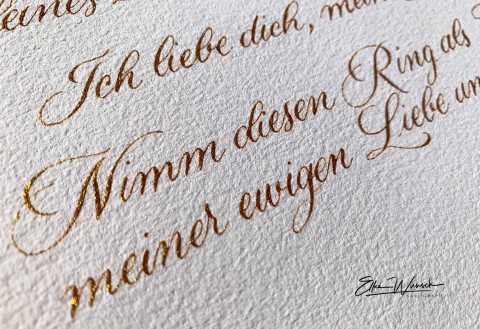 Ich liebe dich,
Nimm diesen Ring als
meiner ewigen Liebe un
Elke Wunsch